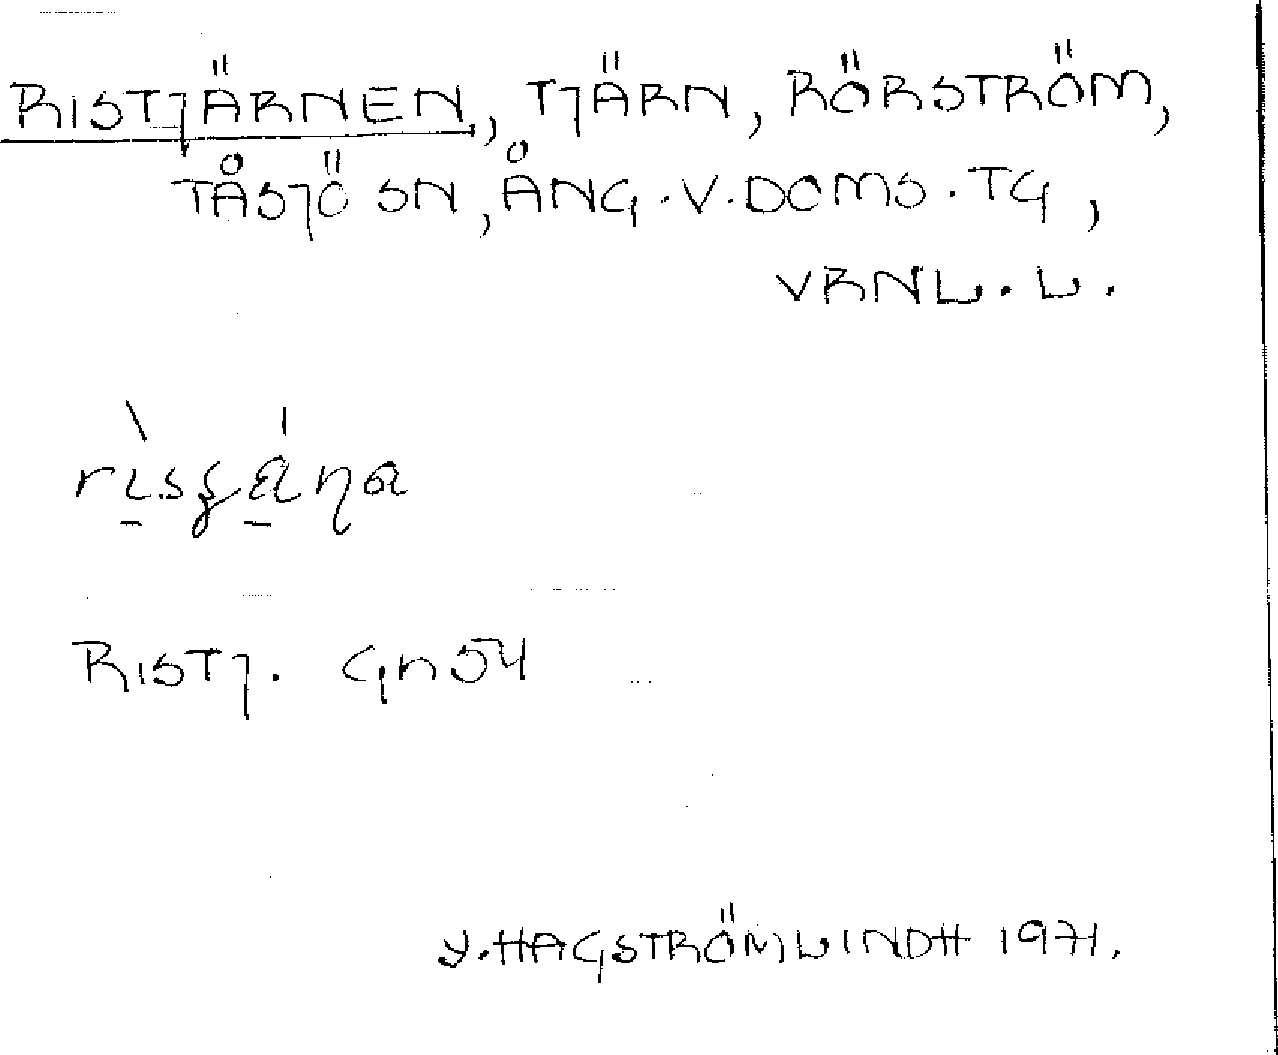 RISTJÄRNEN, TJÄRN, RÖRSTRÖM,
TÅSJÖ SN, ÅNG.V.DOMS.TG,
VRNL.L.
RISTJ. Gn54
Y.HAGSTRÖMLINDH 1971.